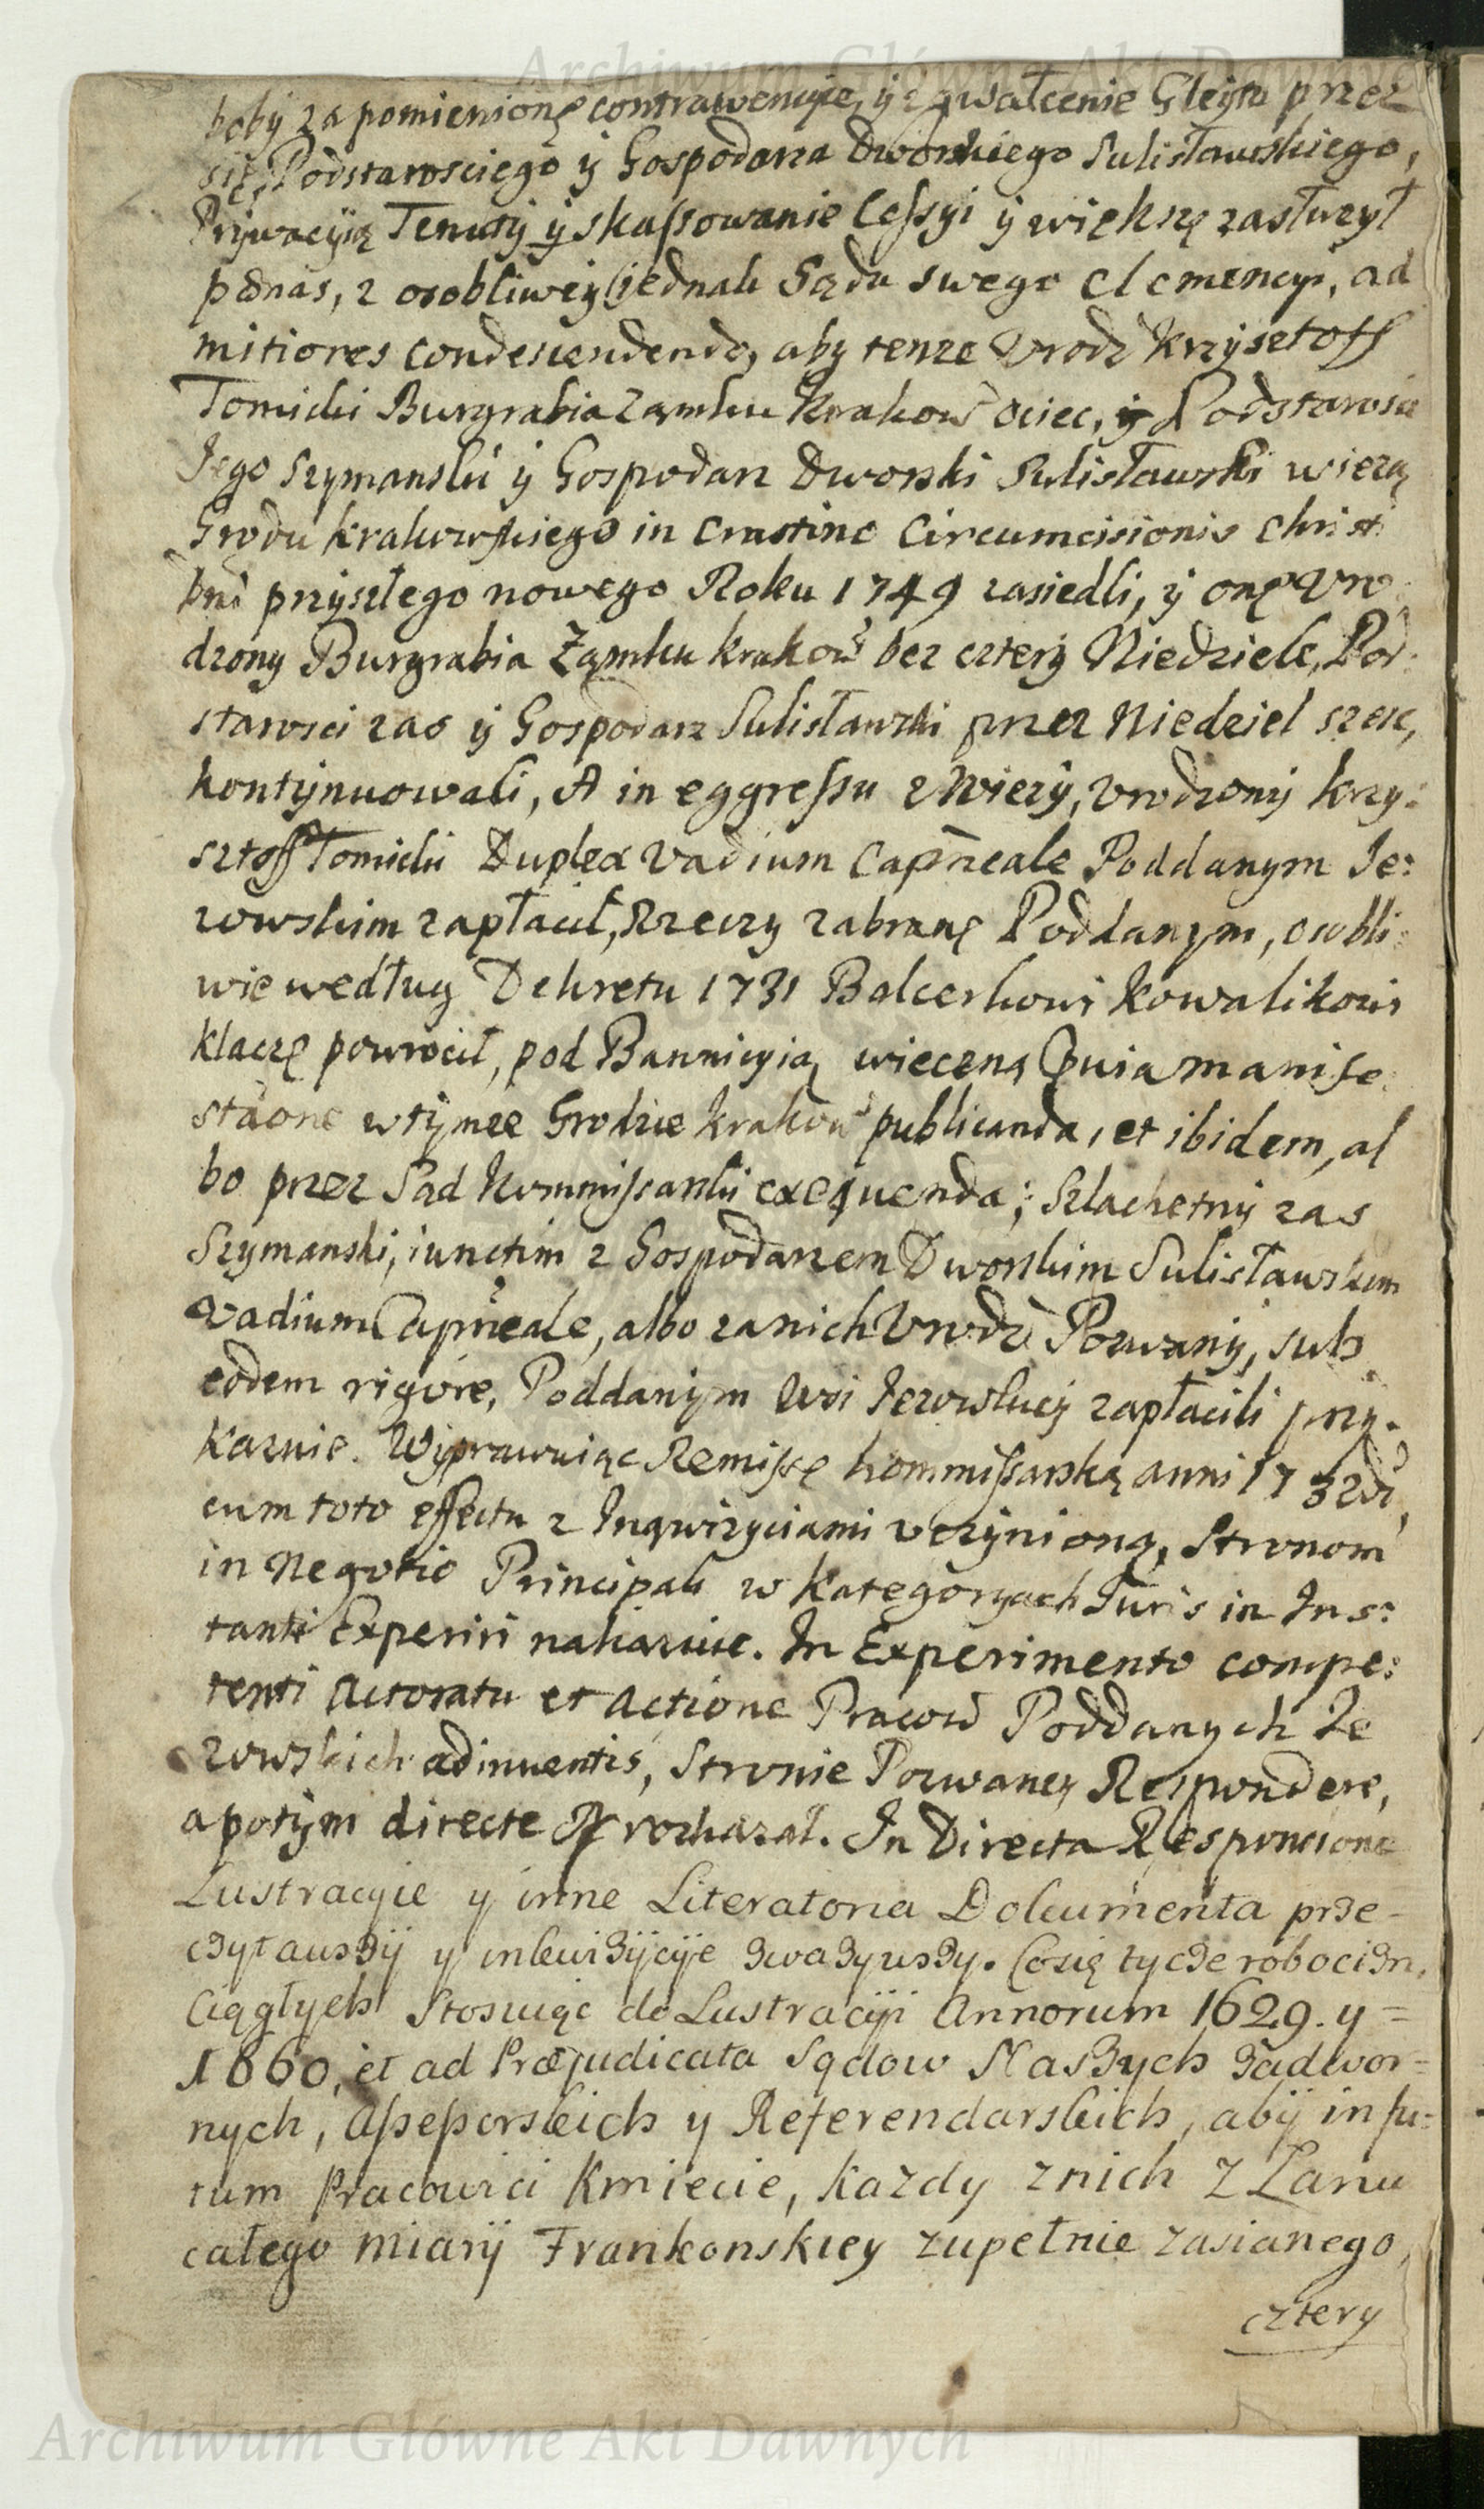 Archiwum Główne Akt Dawnych
boby za pomienionę contrawencyie, y zgwałcenie Gleytu przez
się, Podstarosciego y Gospodarza Dworskiego Sulisławskiego,
Prywacyią Tenuty y skassowanie Cessyi y większą zasłuzył
poenas, z osobliwey jednak Sądu swego clemencyi, ad
mitiores condescendendo, aby tenze Urodz Krzysztoff
Tomicki Burgrabia Zamku Krakow Ociec, y Podstarosci
Jego Szymanski y Gospodarz Dworski Sulisławski wiezą
Grodu krakowskiego in Crastino Circumcisionis Christi
Dni przyszłego nowego Roku 1749 zasiedli, y onę Uro
dzony Burgrabia Zamku krakow bez cztery Niedziele, Pod
starosci zas y Gospodarz Sulisławski przez Niedziel szesc,
kontynuowali, A in eggressu z Wiezy, Urodzony krzy:
sztoff Tomicki Duplex Vadium Capneale Poddanym Je:
zowskim zapłacił, Rzeczy zabranę Poddanym, osobli:
wie według Dekretu 1731 Balcerkowi Kowalikowi
klaczę powrocił, pod Bannicyią wieczną Quia manife
staone w tymze Grodzie krakow publicanda, et ibidem, al
bo przez Sad Kommissarski exequenda; Szlachetny zas
Szymanski, iunctim z Gospodarzem Dworskim Sulisławskim
Vadium Capneale, albo za nich Urodz Pozwany, sub
eodem rigore, Poddanym Wsi Jezowskiey zapłacili przy
kazuie. Wyprawuiąc Remissę kommissarską anni 1732di
cum toto effectu z Inqwizyciami uczynioną, Stronom
in Negotio Principali w kategoryach Juris in Ins:
tanti Experiri nakazuie. In Experimento compe:
tenti Actoratu et Actione Pracow Poddanych Je
zowskich adinventis, Stronie Pozwaney Respondere,
a potym directe rozkazał. In Directa Responsione
Lustracyie y inne Literatoria Dokumenta prze-
czytawszy y inkwizycyie zwazywszy. Co się tycze robocizn,
Ciągłych Stosuiąc do Lustracyi Annorum 1629. y =
1660, et ad Præjudicata Sądow Naszych Zadwor=
nych, Assessorskich y Referendarskich, aby in fu=
turum Pracowici Kmiecie, kazdy z nich z Łanu
całego miary Frankonskiey zupełnie zasianego,
cztery
Archiwum Główne Akt Dawnych